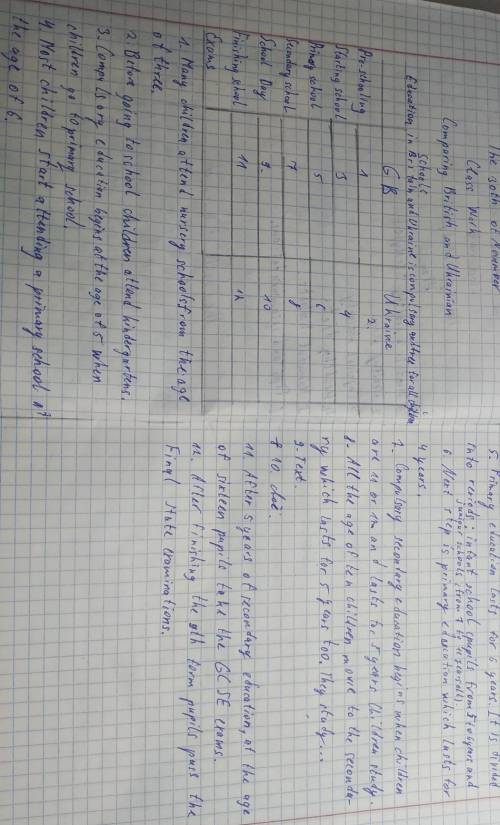 The 30th of November
Class Work
Comparing British and Ukrainian
Schools
Education in Britain and Ukraine is compulsory and free for all children
GB Ukraine
Pre-schooling 1 2
Starting school 3 4
Primary school 5 6
Secondary school 7 8
School Day 9. 10
Finishing school 11 12
Exams
1. Many children attend nursery schools from the age
of three.
2. Before going to school children attend kindergartens.
3. Compulsory education begins at the age of 5 when
children go to primary school.
4. Most children start attending a primary school at
the age of 6.
5. Primary education lasts for 6 years. It is divided
into periods: infant school (pupils from 5 to 6 years and
junior schools (from 7 to 11 years old).
6 Next step is primary education which lasts for
4 years.
7. Compulsory secondary education begins when children
are 11 or 12 and lasts for 5 years. Children study.
8. At the age of ten children move to the seconda-
ry which lasts for 5 years too. They study...
9. Text.
10
11. After 5 years of secondary education, at the age
of sixteen pupils take the GCSE exams.
12. After finishing the 11th form pupils pass the
Final State examinations.